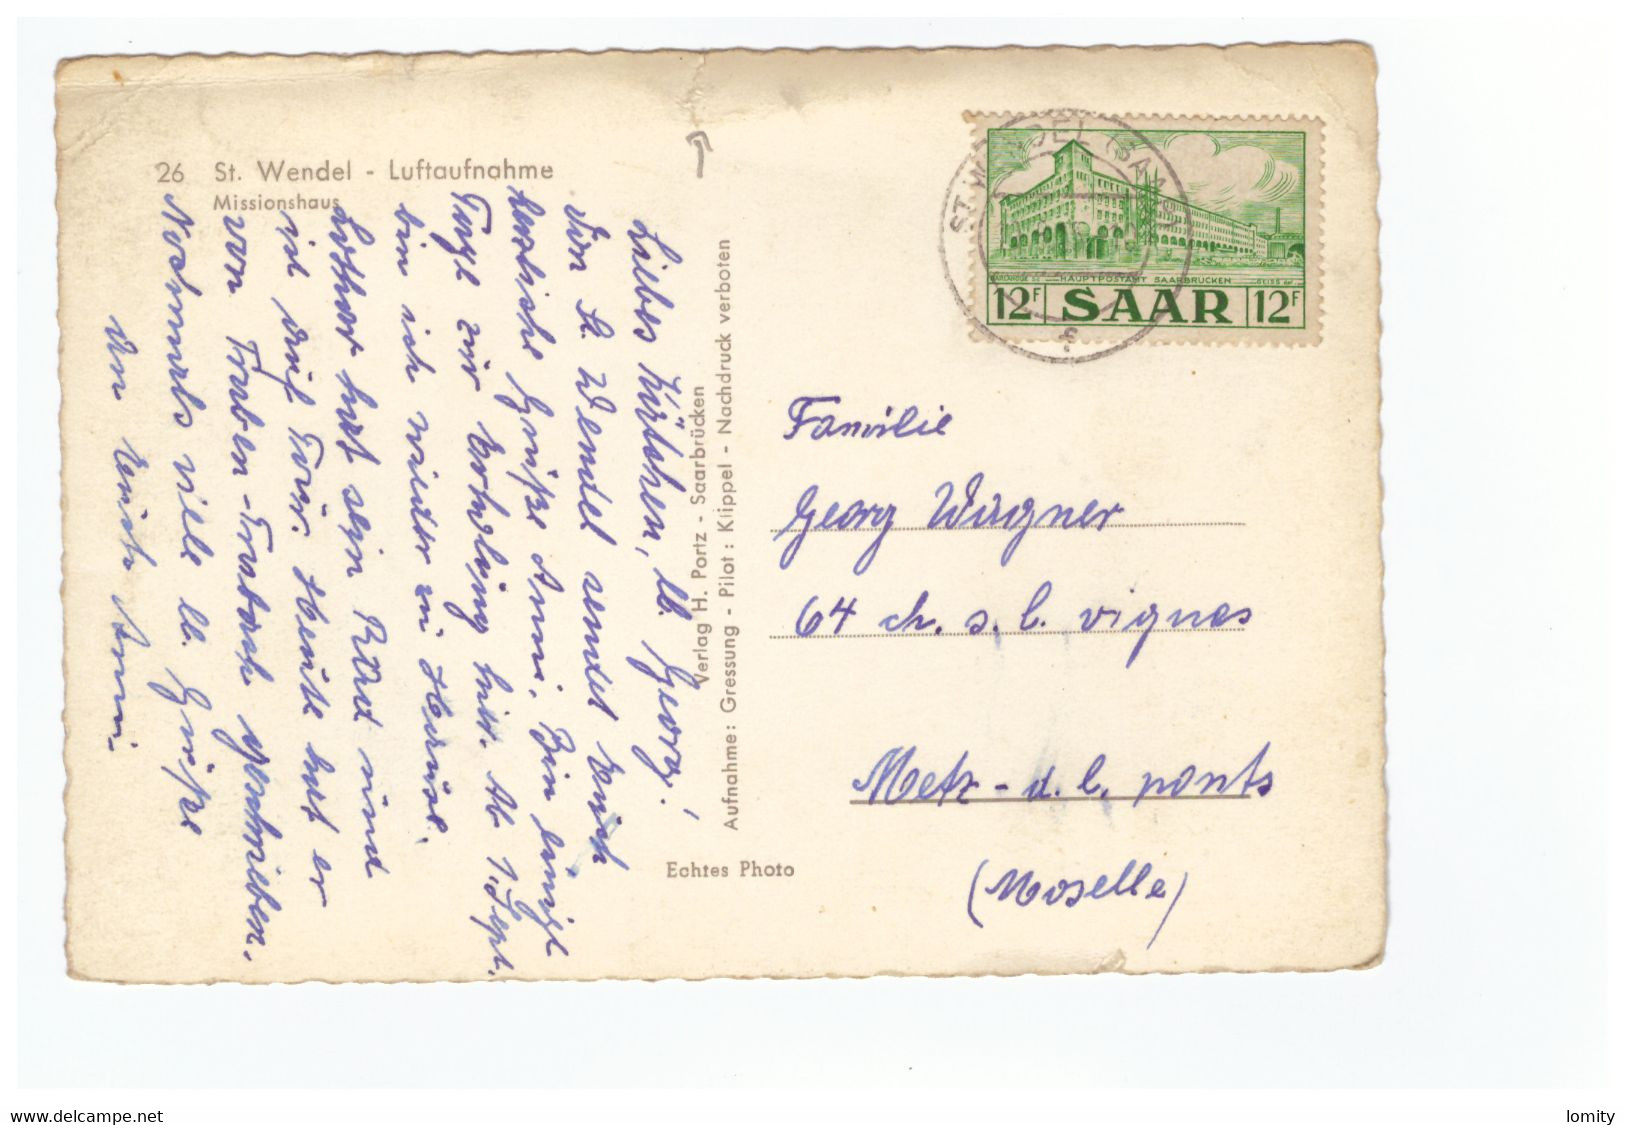 26 St. Wendel - Luftaufnahme
Missionshaus
Liebes Käthchen, lb. Georg!
Von St. Wendel sendet Euch
herzliche Grüße Anni. Bin einige
Tage zur Erholung hier. Ab 1. Sept.
bin ich wieder zu Hause.
Lothar hat sein Rad und
ist auf Tour. Heute hat er
von Traben-Trarbach geschrieben.
Nochmals viele lb. Grüße
an Euch Anni
Verlag H. Portz - Saarbrücken
Aufnahme: Gressung - Pilot: Klippel - Nachdruck verboten
Echtes Photo
ST. WENDEL (SAAR)
HAUPTPOSTAMT SAARBRÜCKEN
12F SAAR 12F
Familie
Georg Wagner
64 ch. s. l. vignes
Metz - d. l. ponts
(Moselle)
www.delcampe.net
lomity